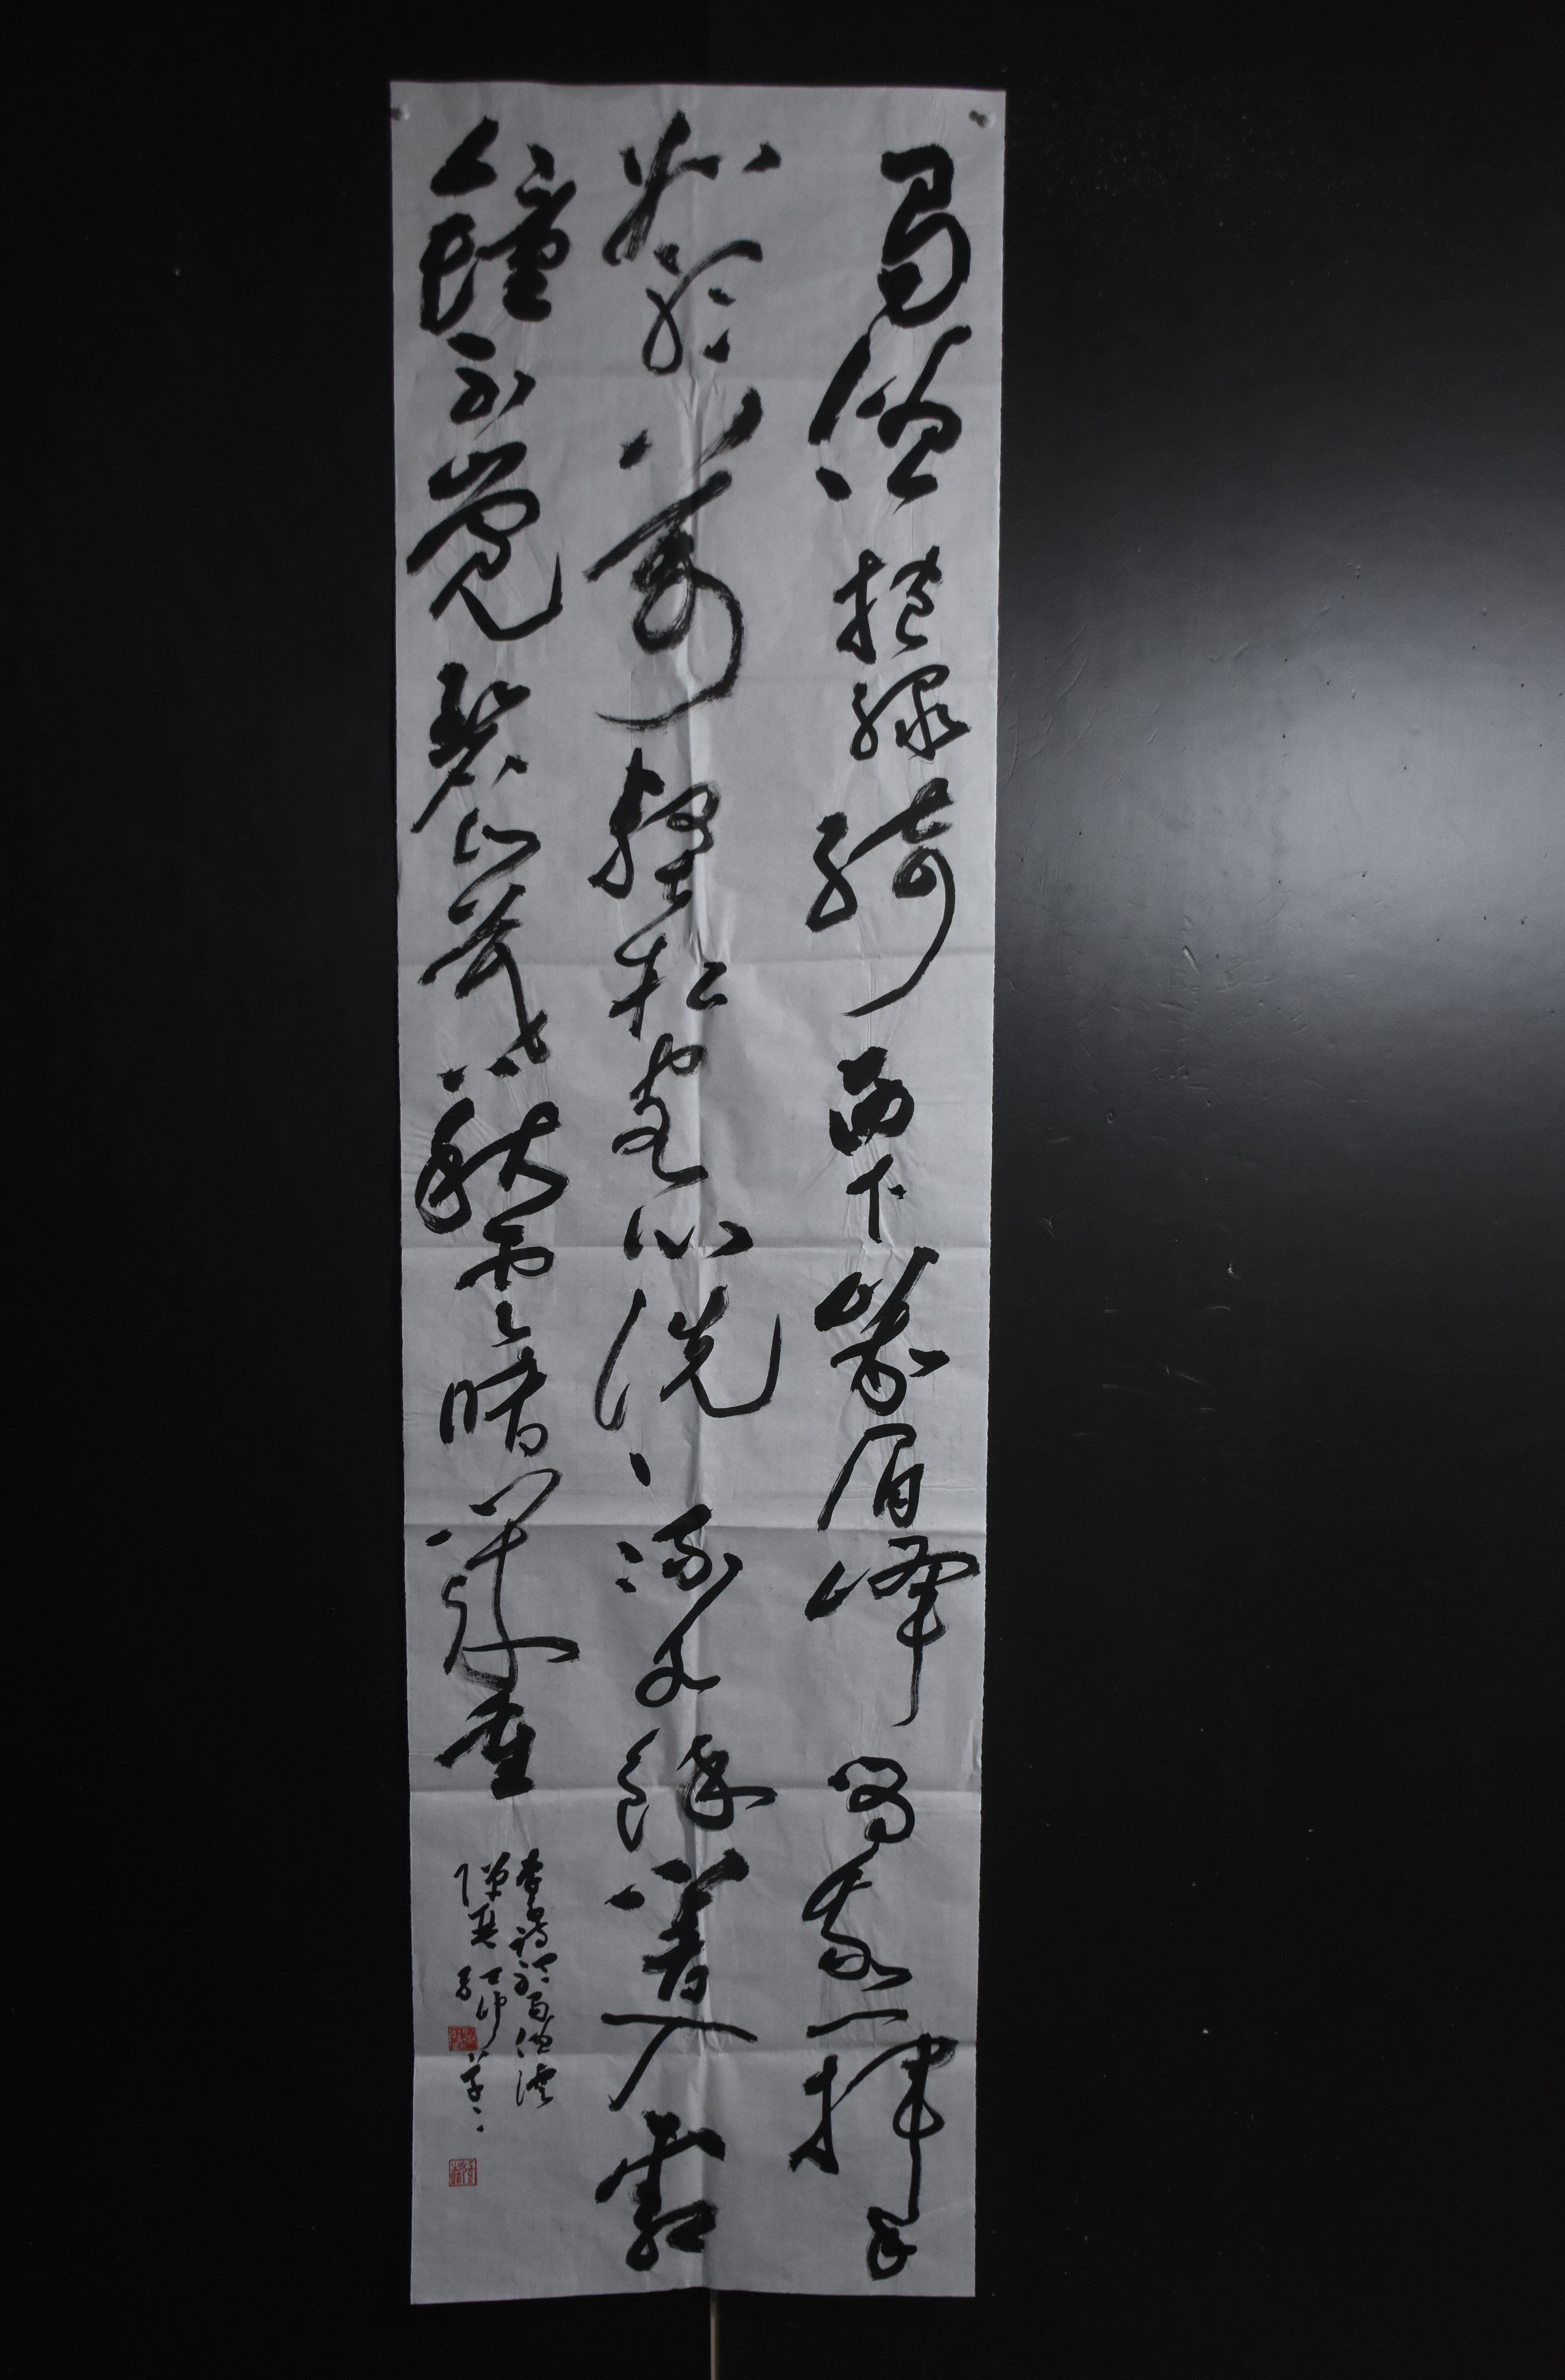 蜀僧抱綠綺西下峩眉峰為我一揮手
如聽萬壑松客心洗流水餘響入霜
鐘不覺碧山暮秋雲暗幾重
李白詩聽蜀僧濬
彈琴丁卯